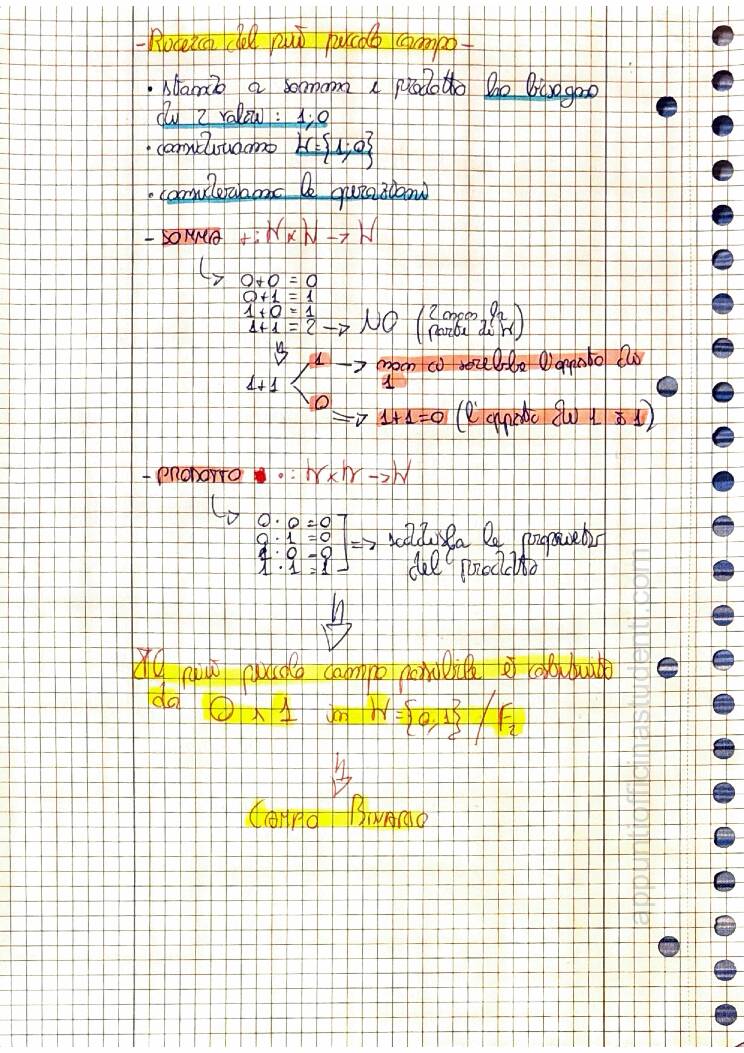 - Ricerca del più piccolo campo -
• stando a somma e prodotto ho bisogno
di 2 valori : 1;0
• consideriamo W={1;0}
• consideriamo le operazioni
- SOMMA +: W×W -> W
0+0 = 0
0+1 = 1
1+0 = 1
1+1 = 2 -> NO (2 non fa
parte di W)
1 -> non ci sarebbe l'opposto di
1
1+1
0 => 1+1=0 (l'opposto di 1 è 1)
- PRODOTTO • : W×W ->W
0 · 0 = 0
0 · 1 = 0
1 · 0 = 0
1 · 1 = 1
=> soddisfa le proprietà
del prodotto
Il più piccolo campo possibile è costituito
da 0 e 1 in W={0,1} / F₂
CAMPO BINARIO
appuntiofficinastudenti.com